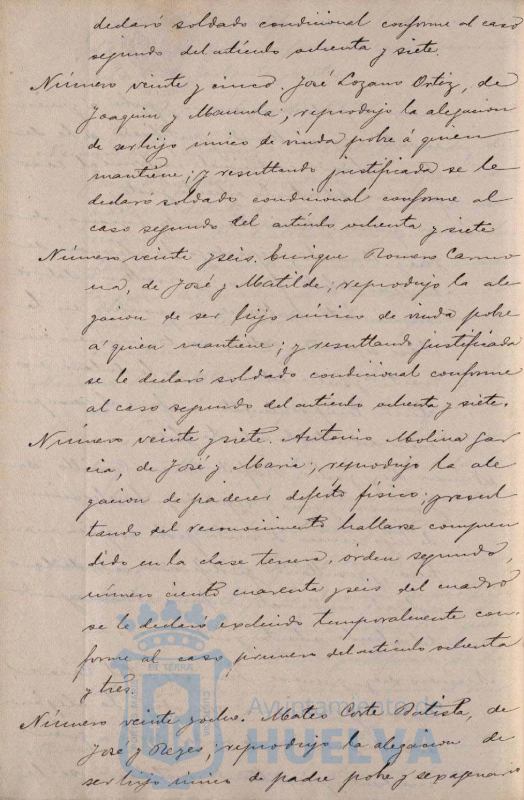 declaró soldado condicional conforme al caso
segundo del artículo ochenta y siete.
Número veinte y cinco. José Lozano Ortiz, de
Joaquin y Manuela, reprodujo la alegacion
de ser hijo único de viuda pobre á quien
mantiene; y resultando justificada se le
declaró soldado condicional conforme al
caso segundo del artículo ochenta y siete
Número veinte y seis. Enrique Romero Carmo
na, de José y Matilde; reprodujo la ale-
gacion de ser hijo único de viuda pobre
á quien mantiene; y resultando justificada
se le declaró soldado condicional conforme
al caso segundo del artículo ochenta y siete.
Número veinte y siete. Antonio Molina Gar-
cia, de José y Maria, reprodujo la ale-
gacion de padecer defecto físico; y resul
tando del reconocimiento hallarse compren
dido en la clase tercera, órden segundo,
número ciento cuarenta y seis del cuadro
se le declaró excluido temporalmente con-
forme al caso primero del artículo ochenta
y tres.
Número veinte y ocho. Mateo Corte Batista, de
José y Reyes; reprodujo la alegacion de
ser hijo único de padre pobre y sexagenario
Ayuntamiento de
HUELVA